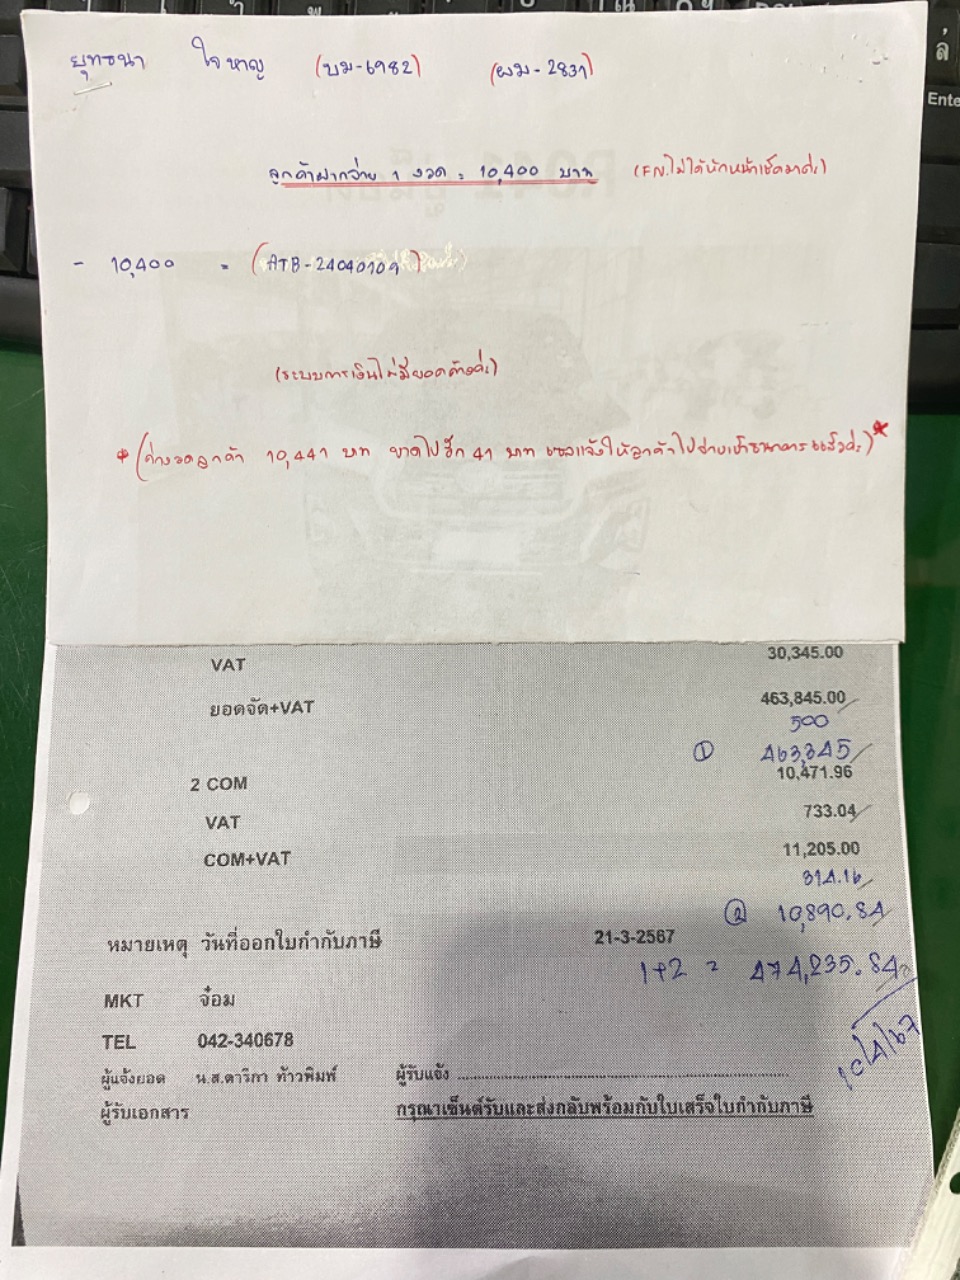 ยุทธนา ใจหาญ (บม-6982) (ผม-2831)
ลูกค้าฝากจ่าย 1 งวด = 10,400 บาท (FN.ไม่ได้หักหน้าเช็คมาค่ะ)
- 10,400 = (ATB-24040109)
(ระบบการเงินไม่มียอดค้างค่ะ)
* (ค่างวดลูกค้า 10,441 บาท ขาดไปอีก 41 บาท เซลแจ้งให้ลูกค้าไปจ่ายเข้าธนาคารแล้วค่ะ) *
VAT 30,345.00
ยอดจัด+VAT 463,845.00
500
① 463,345
2 COM 10,471.96
VAT 733.04
COM+VAT 11,205.00
314.16
② 10,890.84
หมายเหตุ วันที่ออกใบกำกับภาษี 21-3-2567
1+2 = 474,235.84
MKT จ๋อม
10/4/67
TEL 042-340678
ผู้แจ้งยอด น.ส.ดาริกา ท้าวพิมพ์ ผู้รับแจ้ง
ผู้รับเอกสาร กรุณาเซ็นต์รับและส่งกลับพร้อมกับใบเสร็จใบกำกับภาษี
Ente